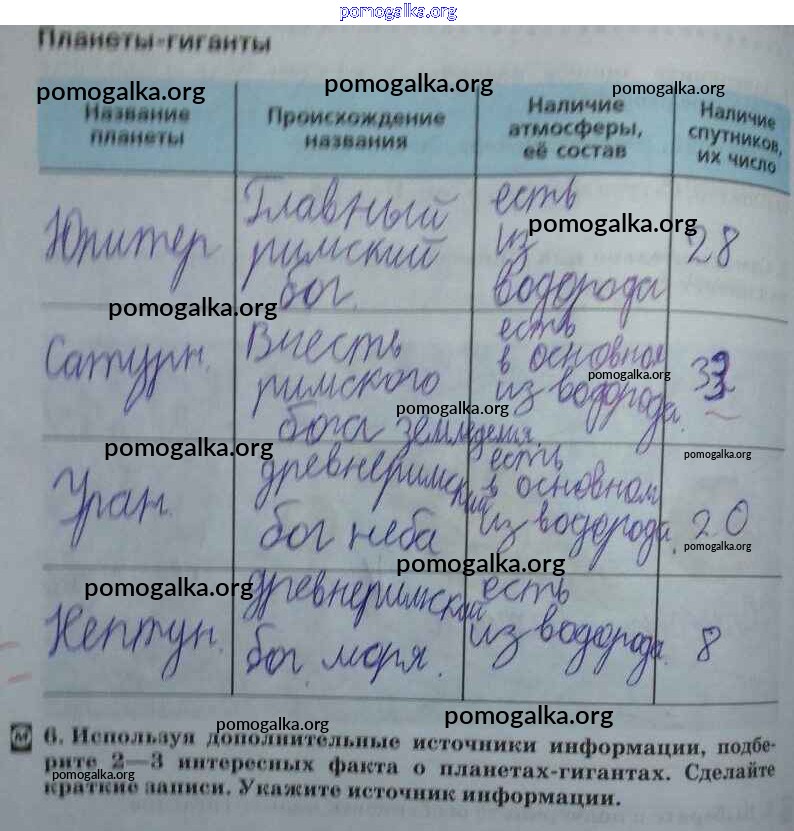 pomogalka.org
Планеты-гиганты
pomogalka.org pomogalka.org pomogalka.org
Название планеты
Происхождение названия
Наличие атмосферы, её состав
Наличие спутников, их число
Юпитер
Главный
римский
бог.
есть
из
водорода
28
pomogalka.org
pomogalka.org
Сатурн.
Вчесть
римского
бога земледелия.
есть
в основном
из водорода.
pomogalka.org
pomogalka.org
pomogalka.org
pomogalka.org
Уран.
древнеримский
бог неба
есть
в основном
из водорода.
20
pomogalka.org
pomogalka.org
pomogalka.org
Нептун.
древнеримский
бог моря.
есть
из водорода.
8
pomogalka.org
pomogalka.org
6. Используя дополнительные источники информации, подбе-
рите 2—3 интересных факта о планетах-гигантах. Сделайте
pomogalka.org
краткие записи. Укажите источник информации.